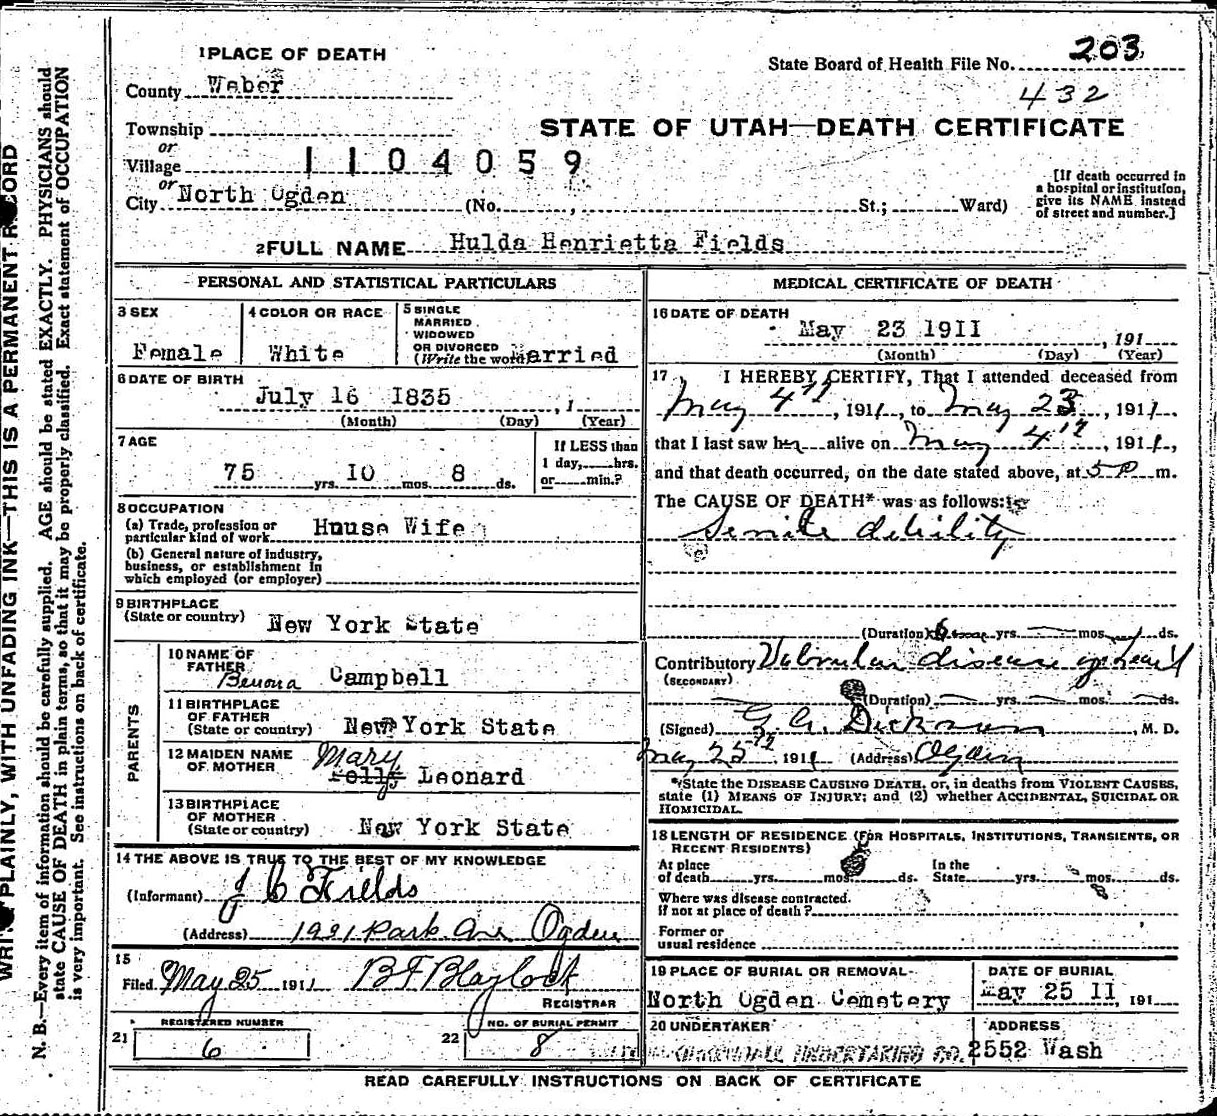 1 PLACE OF DEATH
State Board of Health File No. 203
County Weber
432
Township
STATE OF UTAH—DEATH CERTIFICATE
or
Village
1104059
or
City North Ogden (No. , St.; Ward)
[If death occurred in
a hospital or institution,
give its NAME instead
of street and number.]
2 FULL NAME Hulda Henrietta Fields
PERSONAL AND STATISTICAL PARTICULARS
3 SEX
Female
4 COLOR OR RACE
White
5 SINGLE
MARRIED
WIDOWED
OR DIVORCED
(Write the word) Married
6 DATE OF BIRTH
July 16 1835 , 1
(Month) (Day) (Year)
7 AGE
75 yrs. 10 mos. 8 ds.
If LESS than
1 day, hrs.
or min.?
8 OCCUPATION
(a) Trade, profession or
particular kind of work House Wife
(b) General nature of industry,
business, or establishment in
which employed (or employer)
9 BIRTHPLACE
(State or country) New York State
PARENTS
10 NAME OF
FATHER Benona Campbell
11 BIRTHPLACE
OF FATHER
(State or country) New York State
12 MAIDEN NAME
OF MOTHER Mary Polly Leonard
13 BIRTHPLACE
OF MOTHER
(State or country) New York State
14 THE ABOVE IS TRUE TO THE BEST OF MY KNOWLEDGE
(Informant) J C Fields
(Address) 1921 Park Ave Ogden
15
Filed May 25 1911 B F Blaylock
REGISTRAR
REGISTERED NUMBER
21 6
NO. OF BURIAL PERMIT
22 8
MEDICAL CERTIFICATE OF DEATH
16 DATE OF DEATH
May 23 1911 , 191
(Month) (Day) (Year)
17 I HEREBY CERTIFY, That I attended deceased from
May 4th, 1911, to May 23, 1911,
that I last saw her alive on May 4th, 1911,
and that death occurred, on the date stated above, at 5 P m.
The CAUSE OF DEATH* was as follows:
Senile debility
(Duration) yrs. mos. ds.
Contributory Valvular disease of heart
(SECONDARY)
(Duration) yrs. mos. ds.
(Signed) Dickson, M. D.
May 25th, 1911 (Address) Ogden
*State the DISEASE CAUSING DEATH, or, in deaths from VIOLENT CAUSES,
state (1) MEANS OF INJURY; and (2) whether ACCIDENTAL, SUICIDAL OR
HOMICIDAL.
18 LENGTH OF RESIDENCE (FOR HOSPITALS, INSTITUTIONS, TRANSIENTS, OR
RECENT RESIDENTS)
At place
of death yrs. mos. ds.
In the
State yrs. mos. ds.
Where was disease contracted.
if not at place of death?
Former or
usual residence
19 PLACE OF BURIAL OR REMOVAL
North Ogden Cemetery
DATE OF BURIAL
May 25 11, 191
20 UNDERTAKER
UNDERTAKING CO.
ADDRESS
2552 Wash
READ CAREFULLY INSTRUCTIONS ON BACK OF CERTIFICATE
WRITE PLAINLY, WITH UNFADING INK—THIS IS A PERMANENT RECORD
N. B.—Every item of information should be carefully supplied. AGE should be stated EXACTLY. PHYSICIANS should
state CAUSE OF DEATH in plain terms, so that it may be properly classified. Exact statement of OCCUPATION
is very important. See instructions on back of certificate.